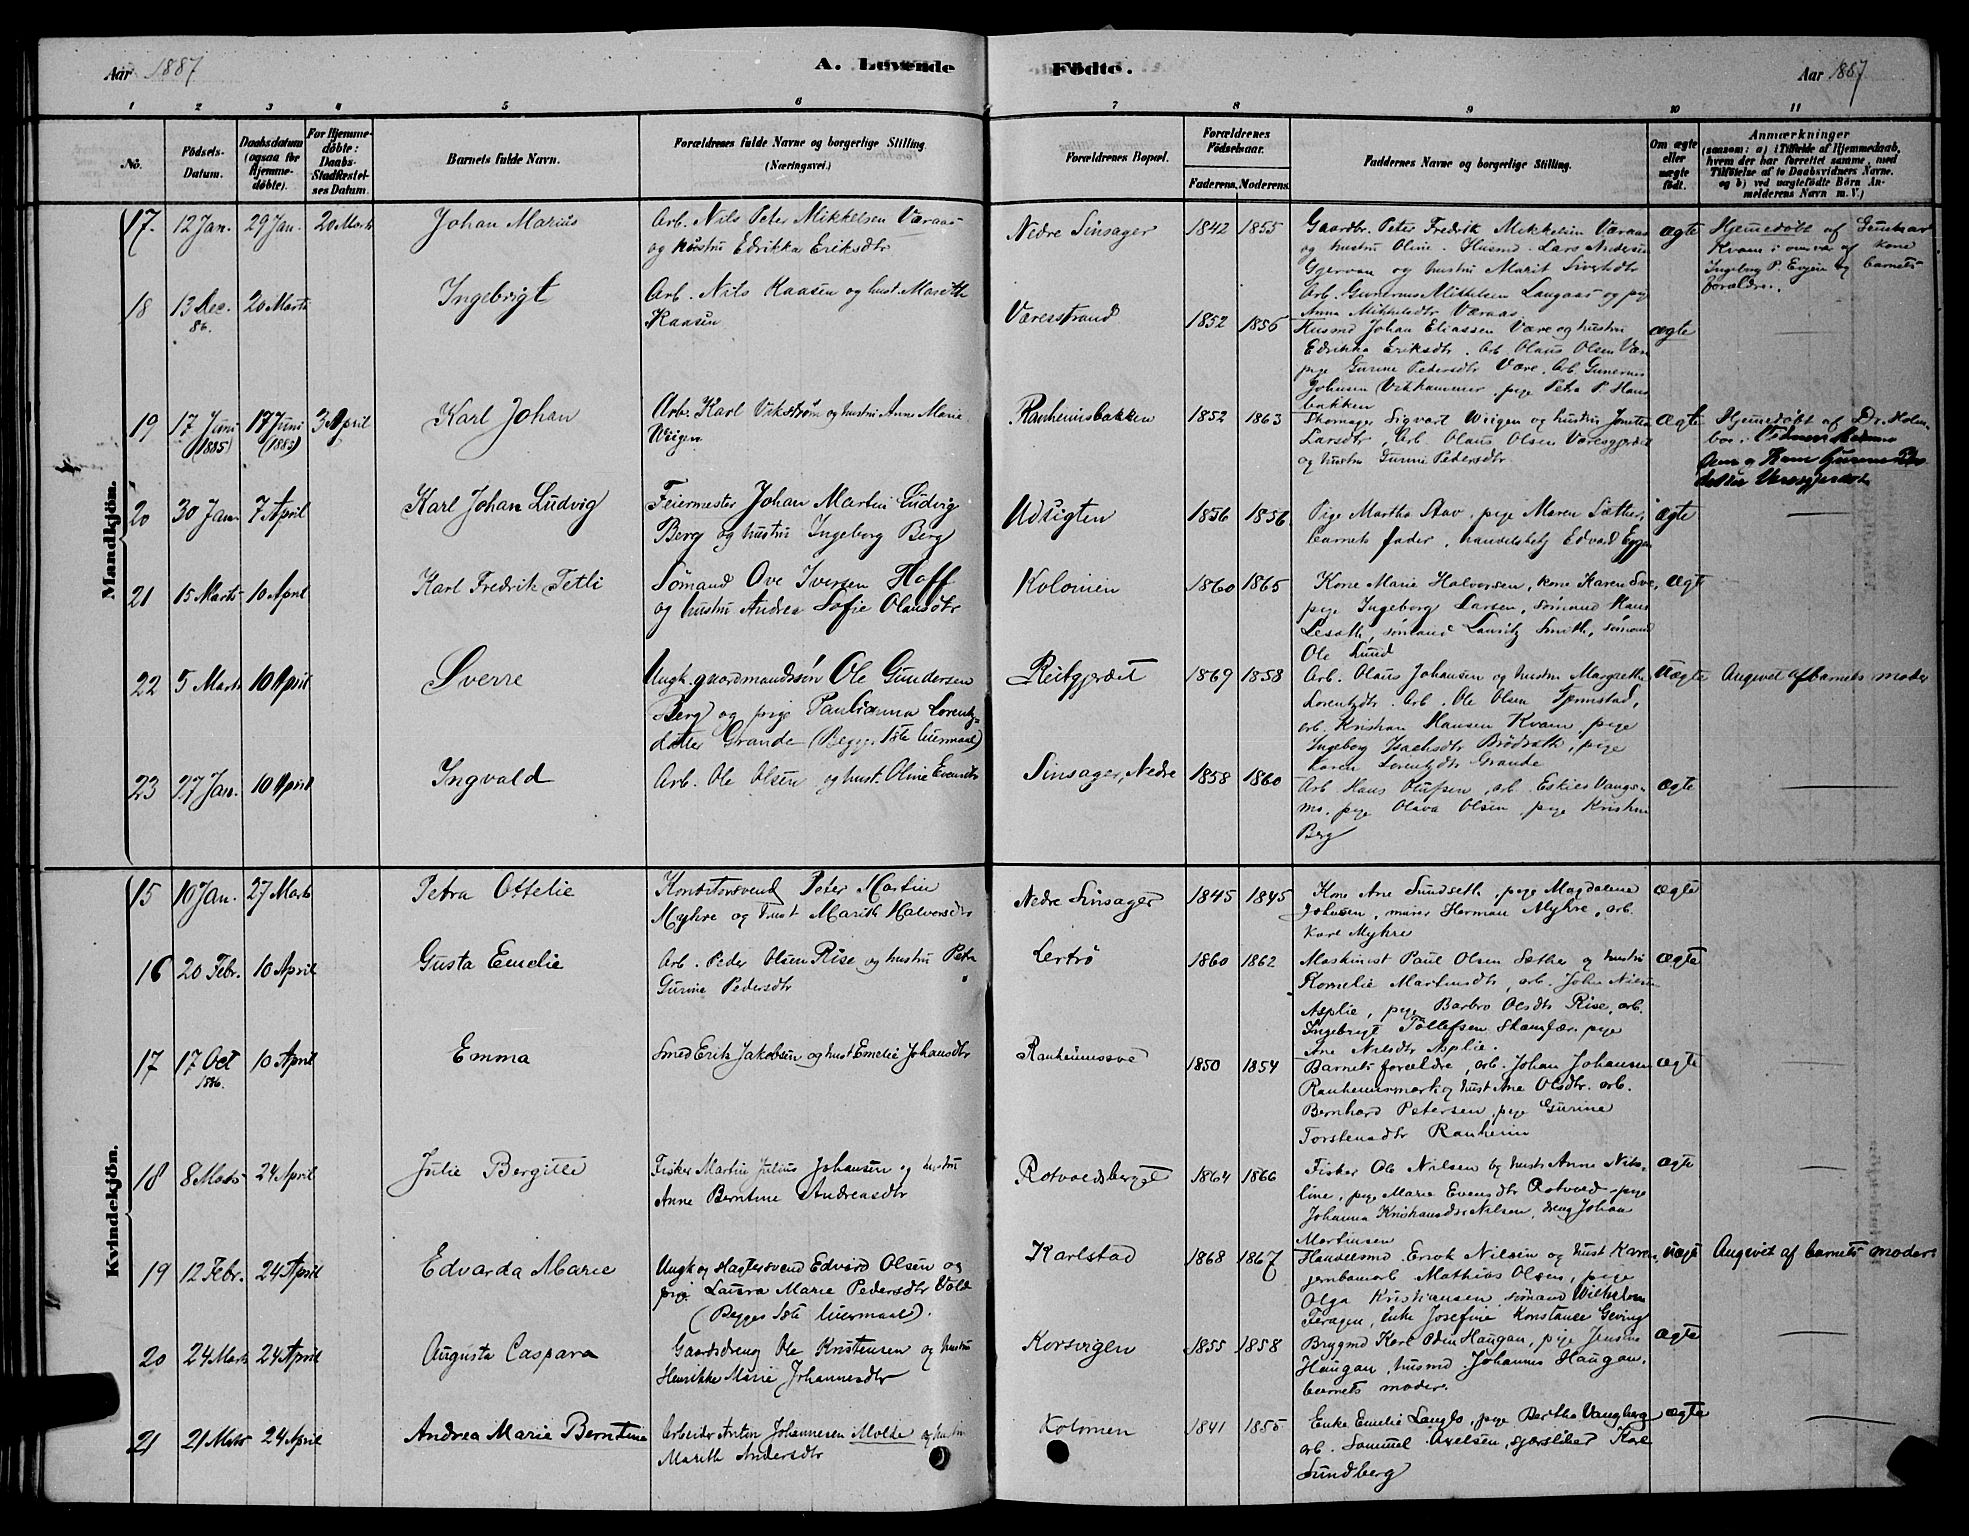 Aar 1887
A. Levende
Födte.
Aar 1887
1 2 3 4 5 6 7 8 9 10 11
No.
Födsels-
Datum.
Daabsdatum
(ogsaa for
Hjemme-
døbte).
For Hjemme-
døbte:
Daabs-
Stadfæstel-
ses Datum.
Barnets fulde Navn.
Forældrenes fulde Navne og borgerlige Stilling.
(Næringsvei.)
Forældrenes Bopæl.
Forældrenes
Födselsaar.
Faderens. Moderens.
Faddernes Navne og borgerlige Stilling.
Om ægte
eller
uægte
født.
Anmærkninger
(saasom: a) i Tilfælde af Hjemmedaab,
hvem der har forrettet samme, med
Tilføielse af to Daabsvidners Navne.
og b) ved uægtefødte Børn An-
melderens Navn m. V.)
Mandkjön.
17. 12 Jan. 29 Jan. 20 Marts Johan Marius
Arb. Nils Peter Mikkelsen Væraas
og hustru Edrikka Eriksdtr
Nedre Sinsager 1842 1855
Gaardbr. Peter Fredrik Mikkelsen Væraas
og hustru Oline. Husmd. Lars Andersen
Gjervan og hustru Marit Sivertsdtr
Arb. Gunerius Mikkelsen Laugaas og pige
Anna Mikkelsdtr Væraas.
ægte
Hjemmedøbt af Gunnar
Kvam i overvær af kone
Ingeborg P. Evjen og barnets
forældre.
18 13 Dec. 86. 20 Marts Ingebrigt
Arb. Nils Kaasen og hust. Marith
Kaasen
Væresstrand 1852 1856
Husmd Johan Eliassen Være og hustru
Edrikka Eriksdtr. Arb. Olaus Olsen Være
pige Gurine Pedersdtr Være. Arb. Gunerius
Johnsen Vikhammer, pige Petra P. Hans
bakken
ægte
19 17 Juni (1885) 17 Juni (1885) 3 April Karl Johan
Arb. Karl Vikstrøm og hustru Anne Marie
Wigen
Ranheimsbakken 1852 1863
Skomager Sigvart Wiigen og hustru Jonetta
Larsdtr, Arb. Olaus Olsen Væresgjerdet
og hustru Gurine Pedersdtr
Ægte
Hjemmedøbt af Dr. Holm-
boe.
20 30 Jan 7 April Karl Johan Ludvig
Feiermester Johan Martin Ludvig
Berg og hustru Ingeborg Berg
Udsigten 1856 1856.
Pige Martha Aav, pige Maren Sætter,
barnets fader, handelsbetj Edvard Eggen
Ægte
21 15 Marts 10 April Karl Fredrik Tetli
Sømand Ove Iversen Hoff
og hustru Andrea Sofie Olausdtr
Kolonien 1860 1865
Kone Marie Halvorsen, kone Karen Sve,
pige Ingeborg Larsen, sømand Hans
Lesath, sømand Lauritz Smith, sømand
Ole Lund
Ægte
22 5 Marts 10 April Sverre
Ungk. gaardmandssøn Ole Gundersen
Berg og pige Paulianna Lorentz-
datter Grande (Begges 1ste leiermaal)
Reitgjerdet 1869 1858
Arb. Olaus Johansen og hustru Margrethe
Lorentzdtr. Arb. Ole Olsen Gjømstad,
arb. Kristian Hansen Kvam, pige
Ingeborg Isachsdtr Brødreth, pige
Karen Lorentzdtr Grande
Uægte
Angivet af barnets moder
23 27 Jan. 10 April Ingvald
Arb. Ole Olsen og hust. Oline Evensdtr
Sinsager, Nedre 1858 1860
Arb Hans Olufsen, arb. Eskild Vangs-
mo, pige Olava Olsen, pige Kristine
Berg
ægte
Kvindekjön.
15 10 Jan. 27 Marts Petra Ottelie
Konditorsvend Peter Martin
Myhre og hust Marith Halvorsdtr
Nedre Sinsager 1845 1845
Kone Ane Sundseth, pige Magdalene
Johnsen, murer Herman Myhre, arb.
Karl Myhre
ægte
16 20 Febr. 10 April Gusta Emelie
Arb. Peder Olsen Rise og hustru Petra
Gurine Pedersdtr
Lertrø 1860 1862
Maskinist Paul Olsen Sæther og hustru
Kornelie Martinsdtr, arb. John Nilsen
Asplie, pige Barbro Olsdtr Rise, arb.
Ingebrigt Tollefsen Skamfær pige
Ane Nilsdtr Asplie.
ægte
17 17 Oct 1886. 10 April Emma
Smed Erik Jakobsen og hust Emelie Johansdtr
Ranheimssve 1850 1854
Barnets forældre, arb. Johan Johansen
Ranheimsmark og hust Ane Olsdtr. arb.
Bernhard Petersen pige Gurine
Torstensdtr Ranheim
ægte
18 8 Marts 24 April Julie Bergitte
Fisker Martin Julius Johansen og hustru
Anne Berntine Andreasdtr
Rotvoldsberget 1864 1866
Fisker Ole Nilsen og hust. Anne Niko-
line, pige Marie Evensdtr Rotvold, pige
Johanna Kristiansdtr Nilsen, dreng Johan
Martinsen
ægte
19 12 Febr. 24 April Edvarda Marie
Ungk og slagtersvend Edvard Olsen og
pige Laura Marie Pedersdtr Vold
(Begges 1ste leiermaal).
Karlstad 1868 1867
Handelsmd. Erik Nilsen og hust Karen,
jernbanearb Mathias Olsen, pige
Olga Kristiansen, sømand Wilhelm
Feragen, enke Josefine Konstance Geving
uægte
Angivet af barnets moder.
20 24 Marts 24 April Augusta Caspara
Gaardsdreng Ole Kristensen og hustru
Henrikke Marie Johannesdtr
Korsvigen 1855 1858
Brygmd Karl Oden Haugan, pige Jensine
Haugan, husmd. Johannes Haugan,
barnets moder.
ægte
21 21 Marts 24 April Andrea Marie Berntine
Arbeider Anton Johannesen Molde og hustru
Marith Andersdtr
Kolonien 1841 1855
Enke Emelie Langlo, pige Bertha Vangberg
arb. Sammuel Axelsen, Karl
Sundberg
ægte